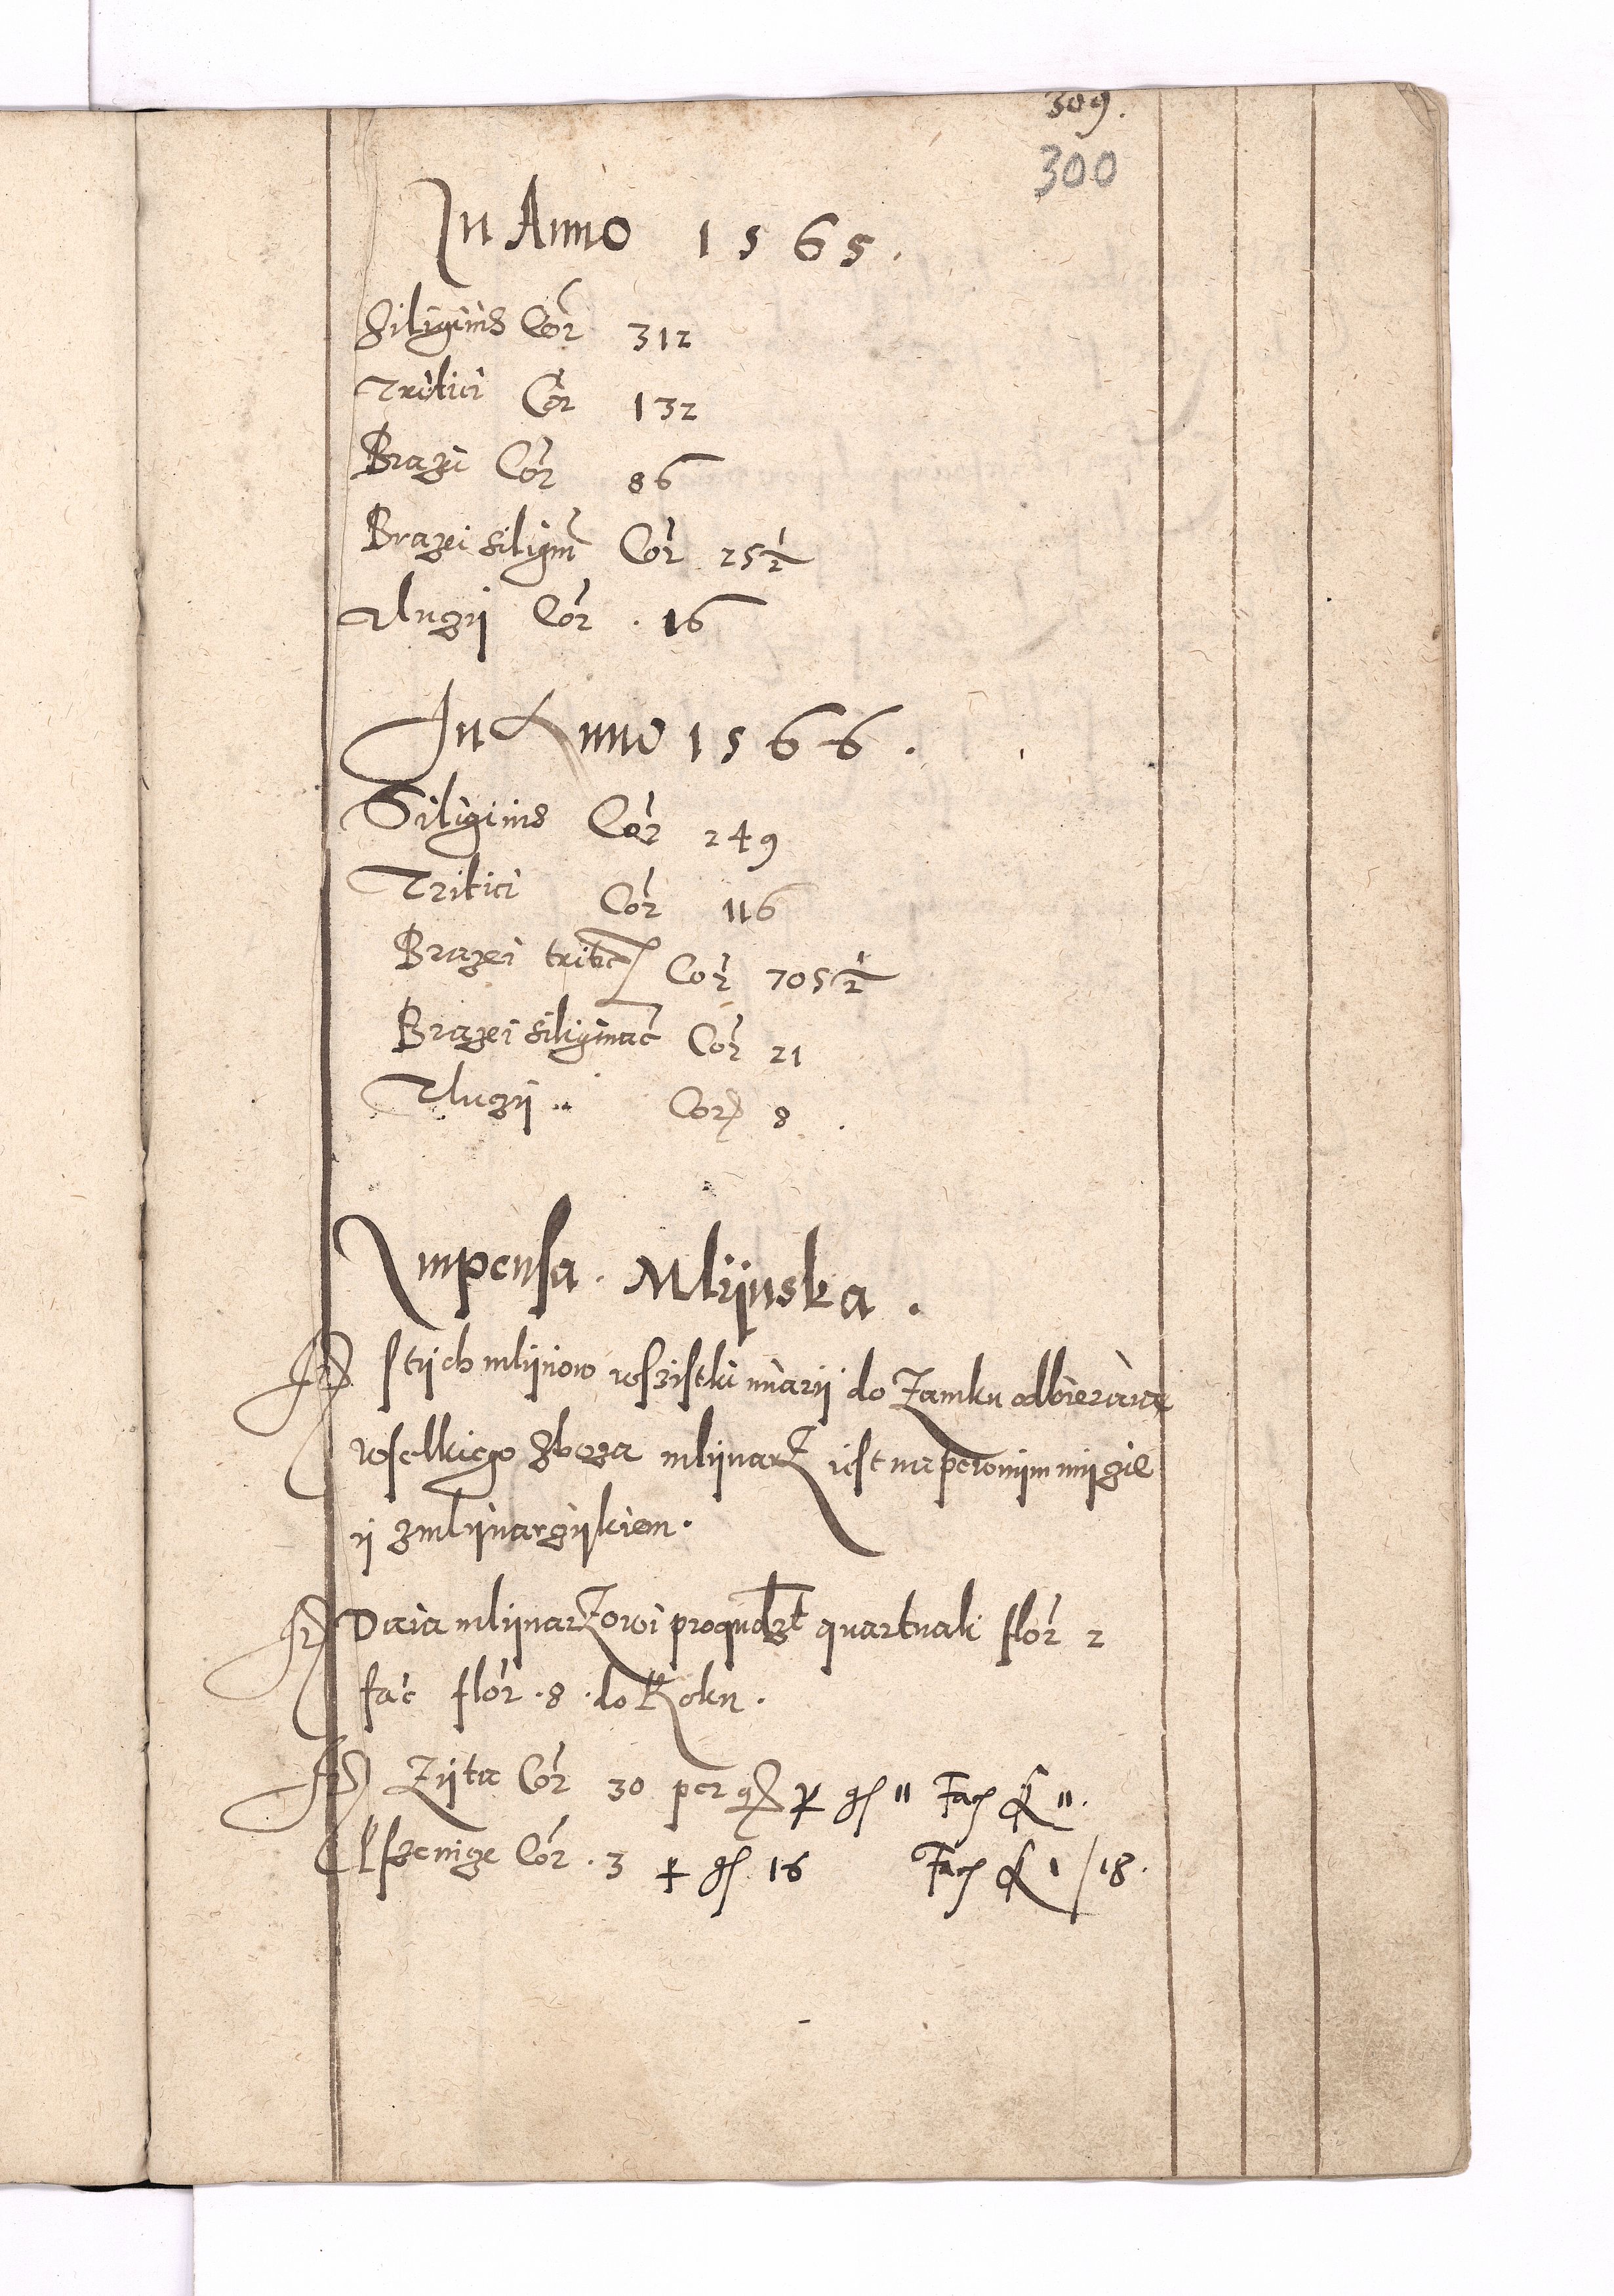 309.
300
In Anno 1565.
Siliginis Cor 312
Tritici Cor 132
Brazei Cor 86
Brazei siligin Cor 25 1/2
Tlugij Cor . 16
In Anno 1566.
Siliginis Cor 249
Tritici Cor 116
Brazei tritic Cor 705 1/2
Brazei siliginac Cor 21
Tlugij Cor 8
Impensa . Mlijnska .
It stijch mlijnow wszistki miarij do Zamku odbieraia
wselkiego zboza mlijnarz iest na pewnijm mijgie
ij zmlijnargijkiem.
It Daia mlijnarzowi pro qudzt quartuali flor 2
fac flor . 8 . do Roku .
It Zijta Cor 30 per gr " Fac "
Pszenige Cor . 3 gr 16 Fac 1/18.